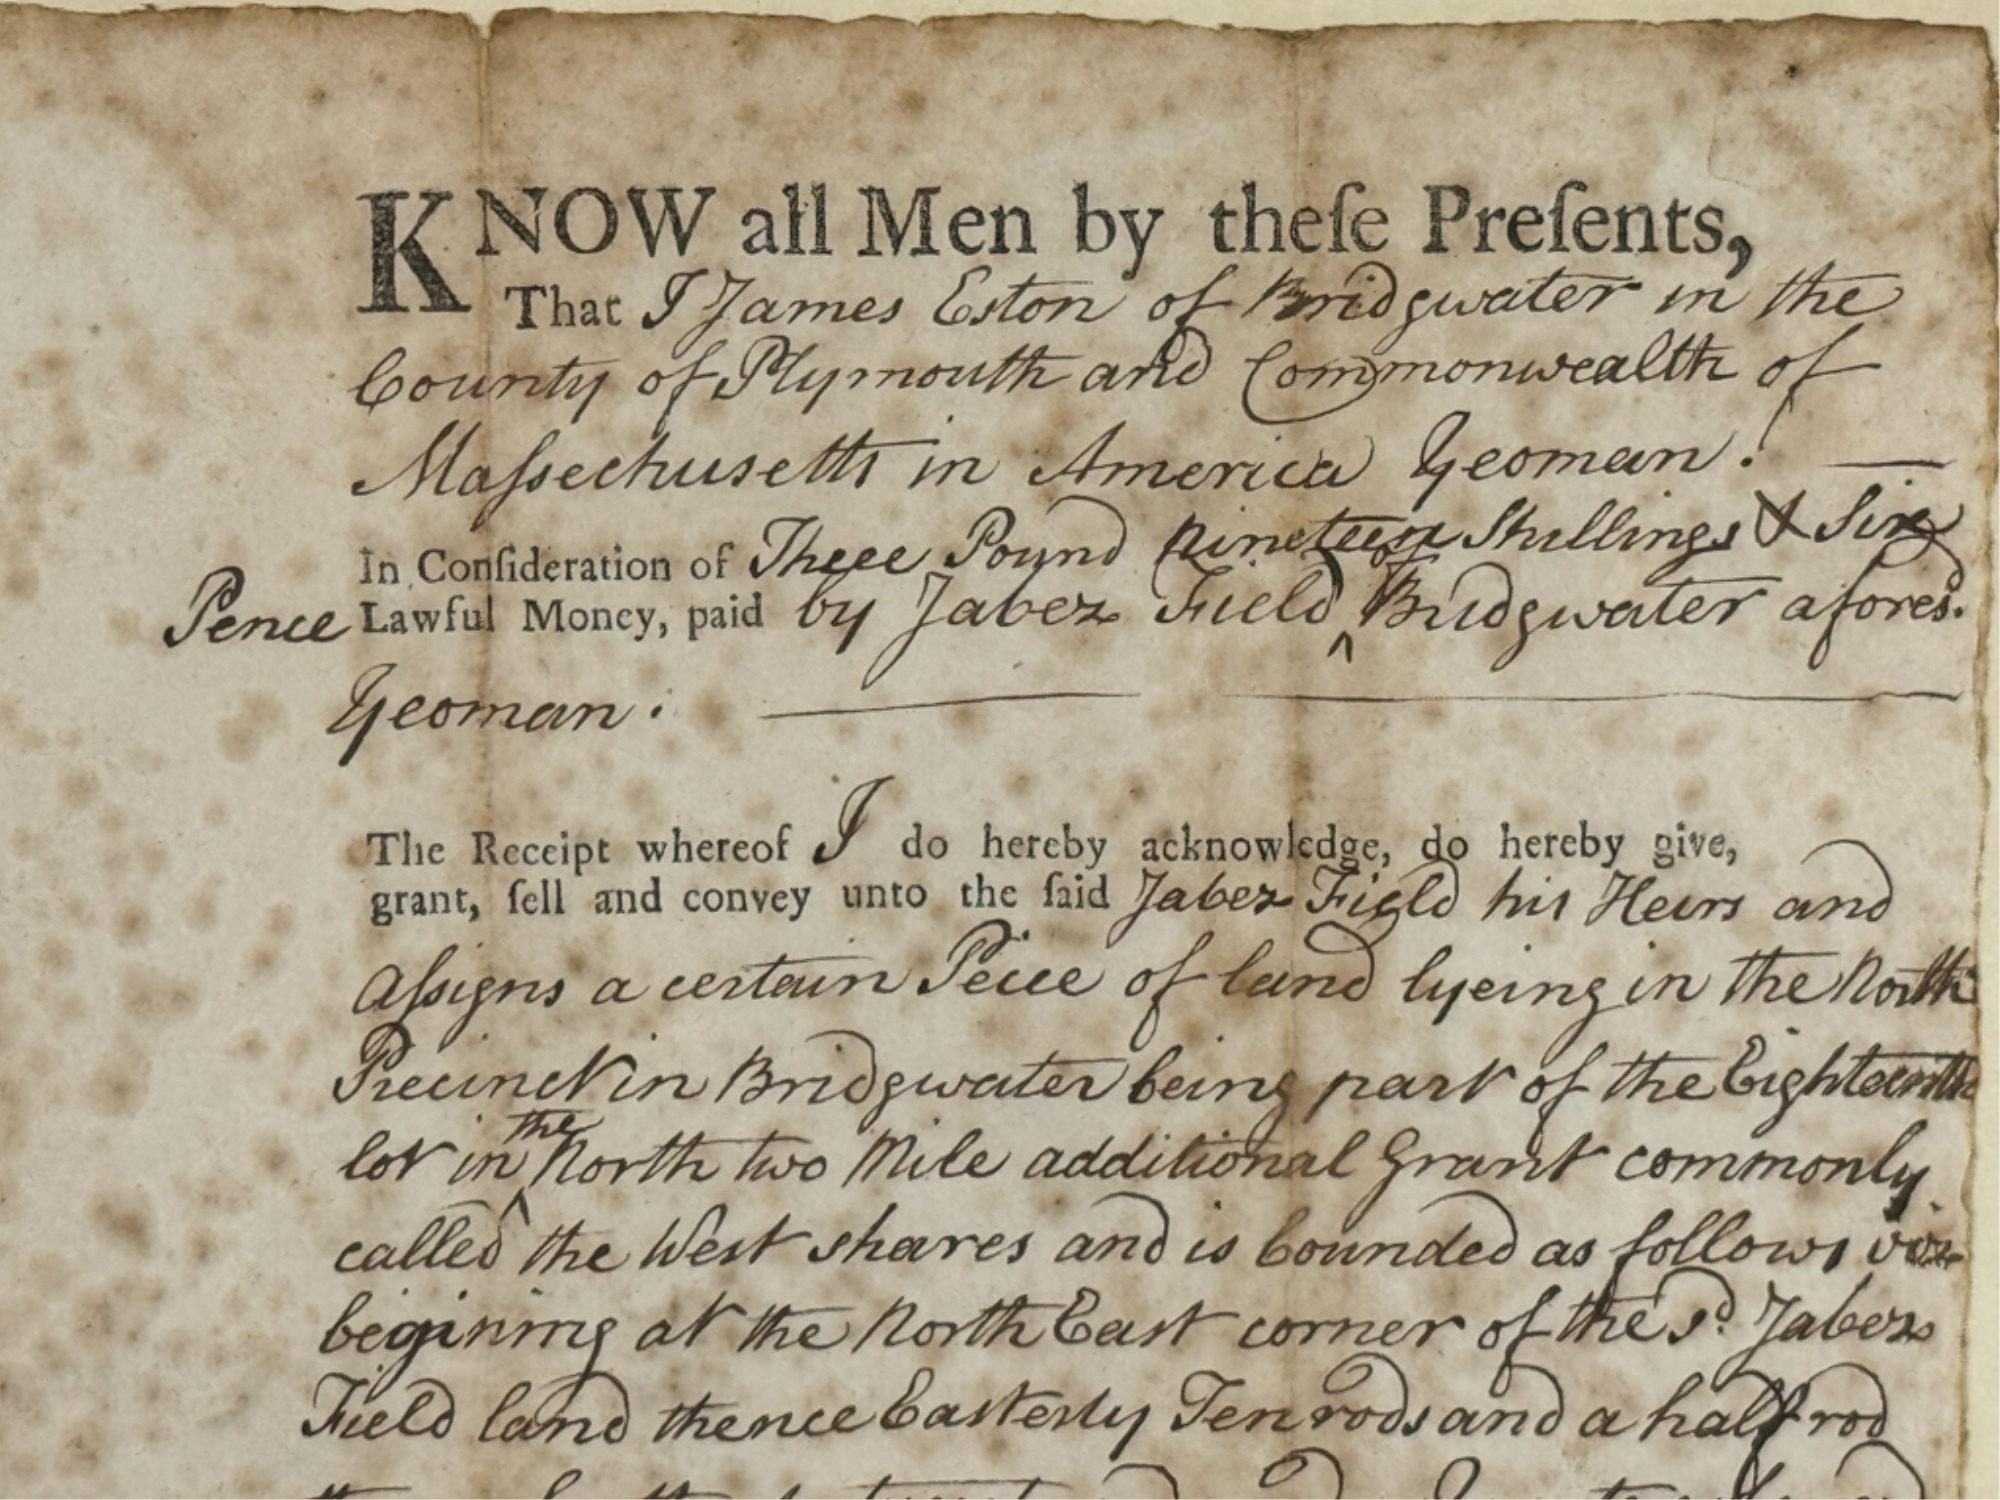 KNOW all Men by theſe Preſents,
That I James Eston of Bridgwater in the
County of Plymouth and Commonwealth of
Maſsechusetts in America Yeoman:
In Conſideration of Three Pound nineteen Shillings & Six
Pence Lawful Money, paid by Jabez Field of Bridgwater afores.
Yeoman:
The Receipt whereof I do hereby acknowledge, do hereby give,
grant, ſell and convey unto the ſaid Jabez Field his Heirs and
Aſsigns a certain Peice of land lyeing in the North
Precinct in Bridgwater being part of the Eighteenth
lot in the North two Mile additional Grant commonly
called the West shares and is bounded as follows viz
begining at the North East corner of the sd. Jabez
Field land thence Easterly Ten rods and a half rod